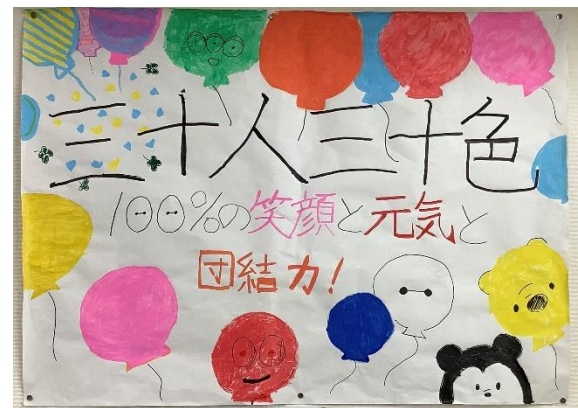 三十人三十色
100%の笑顔と元気と
団結力!